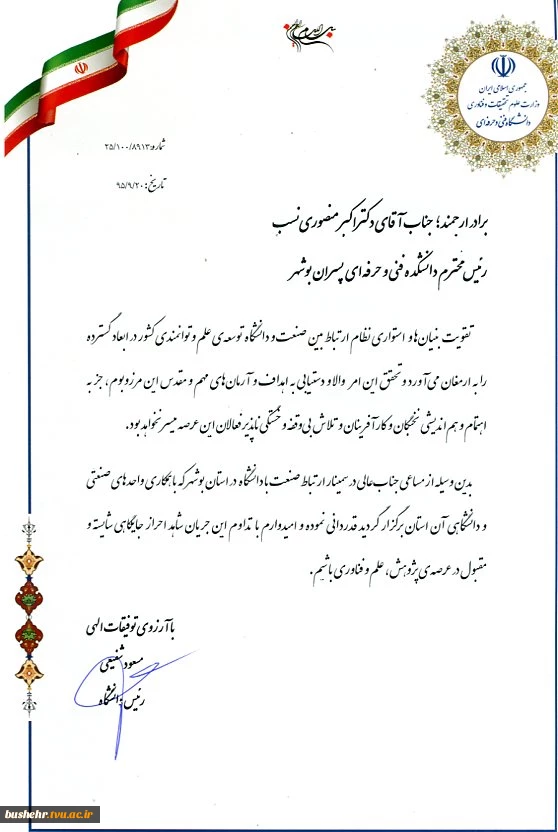 جمهوری اسلامی ایران
وزارت علوم تحقیقات و فناوری
دانشگاه فنی و حرفه‌ای
شماره: ۲۵/۱۰۰/۸۹۱۳
تاریخ: ۹۵/۹/۲۰
برادر ارجمند؛ جناب آقای دکتر اکبر منصوری نسب
رئیس محترم دانشکده فنی و حرفه‌ای پسران بوشهر
تقویت بنیان‌ها و استواری نظام ارتباط بین صنعت و دانشگاه توسعه‌ی علم و توانمندی کشور در ابعاد گسترده
را به ارمغان می‌آورد و تحقق این امر والا و دستیابی به اهداف و آرمان‌های مهم و مقدس این مرز و بوم، جز به
اهتمام و هم اندیشی نخبگان و کارآفرینان و تلاش بی‌وقفه و خستگی ناپذیر فعالان این عرصه میسر نخواهد بود.
بدین وسیله از مساعی جناب‌عالی در سمینار ارتباط صنعت با دانشگاه در استان بوشهر که با همکاری واحدهای صنعتی
و دانشگاهی آن استان برگزار گردید قدردانی نموده و امیدوارم با تداوم این جریان شاهد احراز جایگاهی شایسته و
مقبول در عرصه‌ی پژوهش، علم و فناوری باشیم.
با آرزوی توفیقات الهی
مسعود شفیعی
رئیس دانشگاه
bushehr.tvu.ac.ir